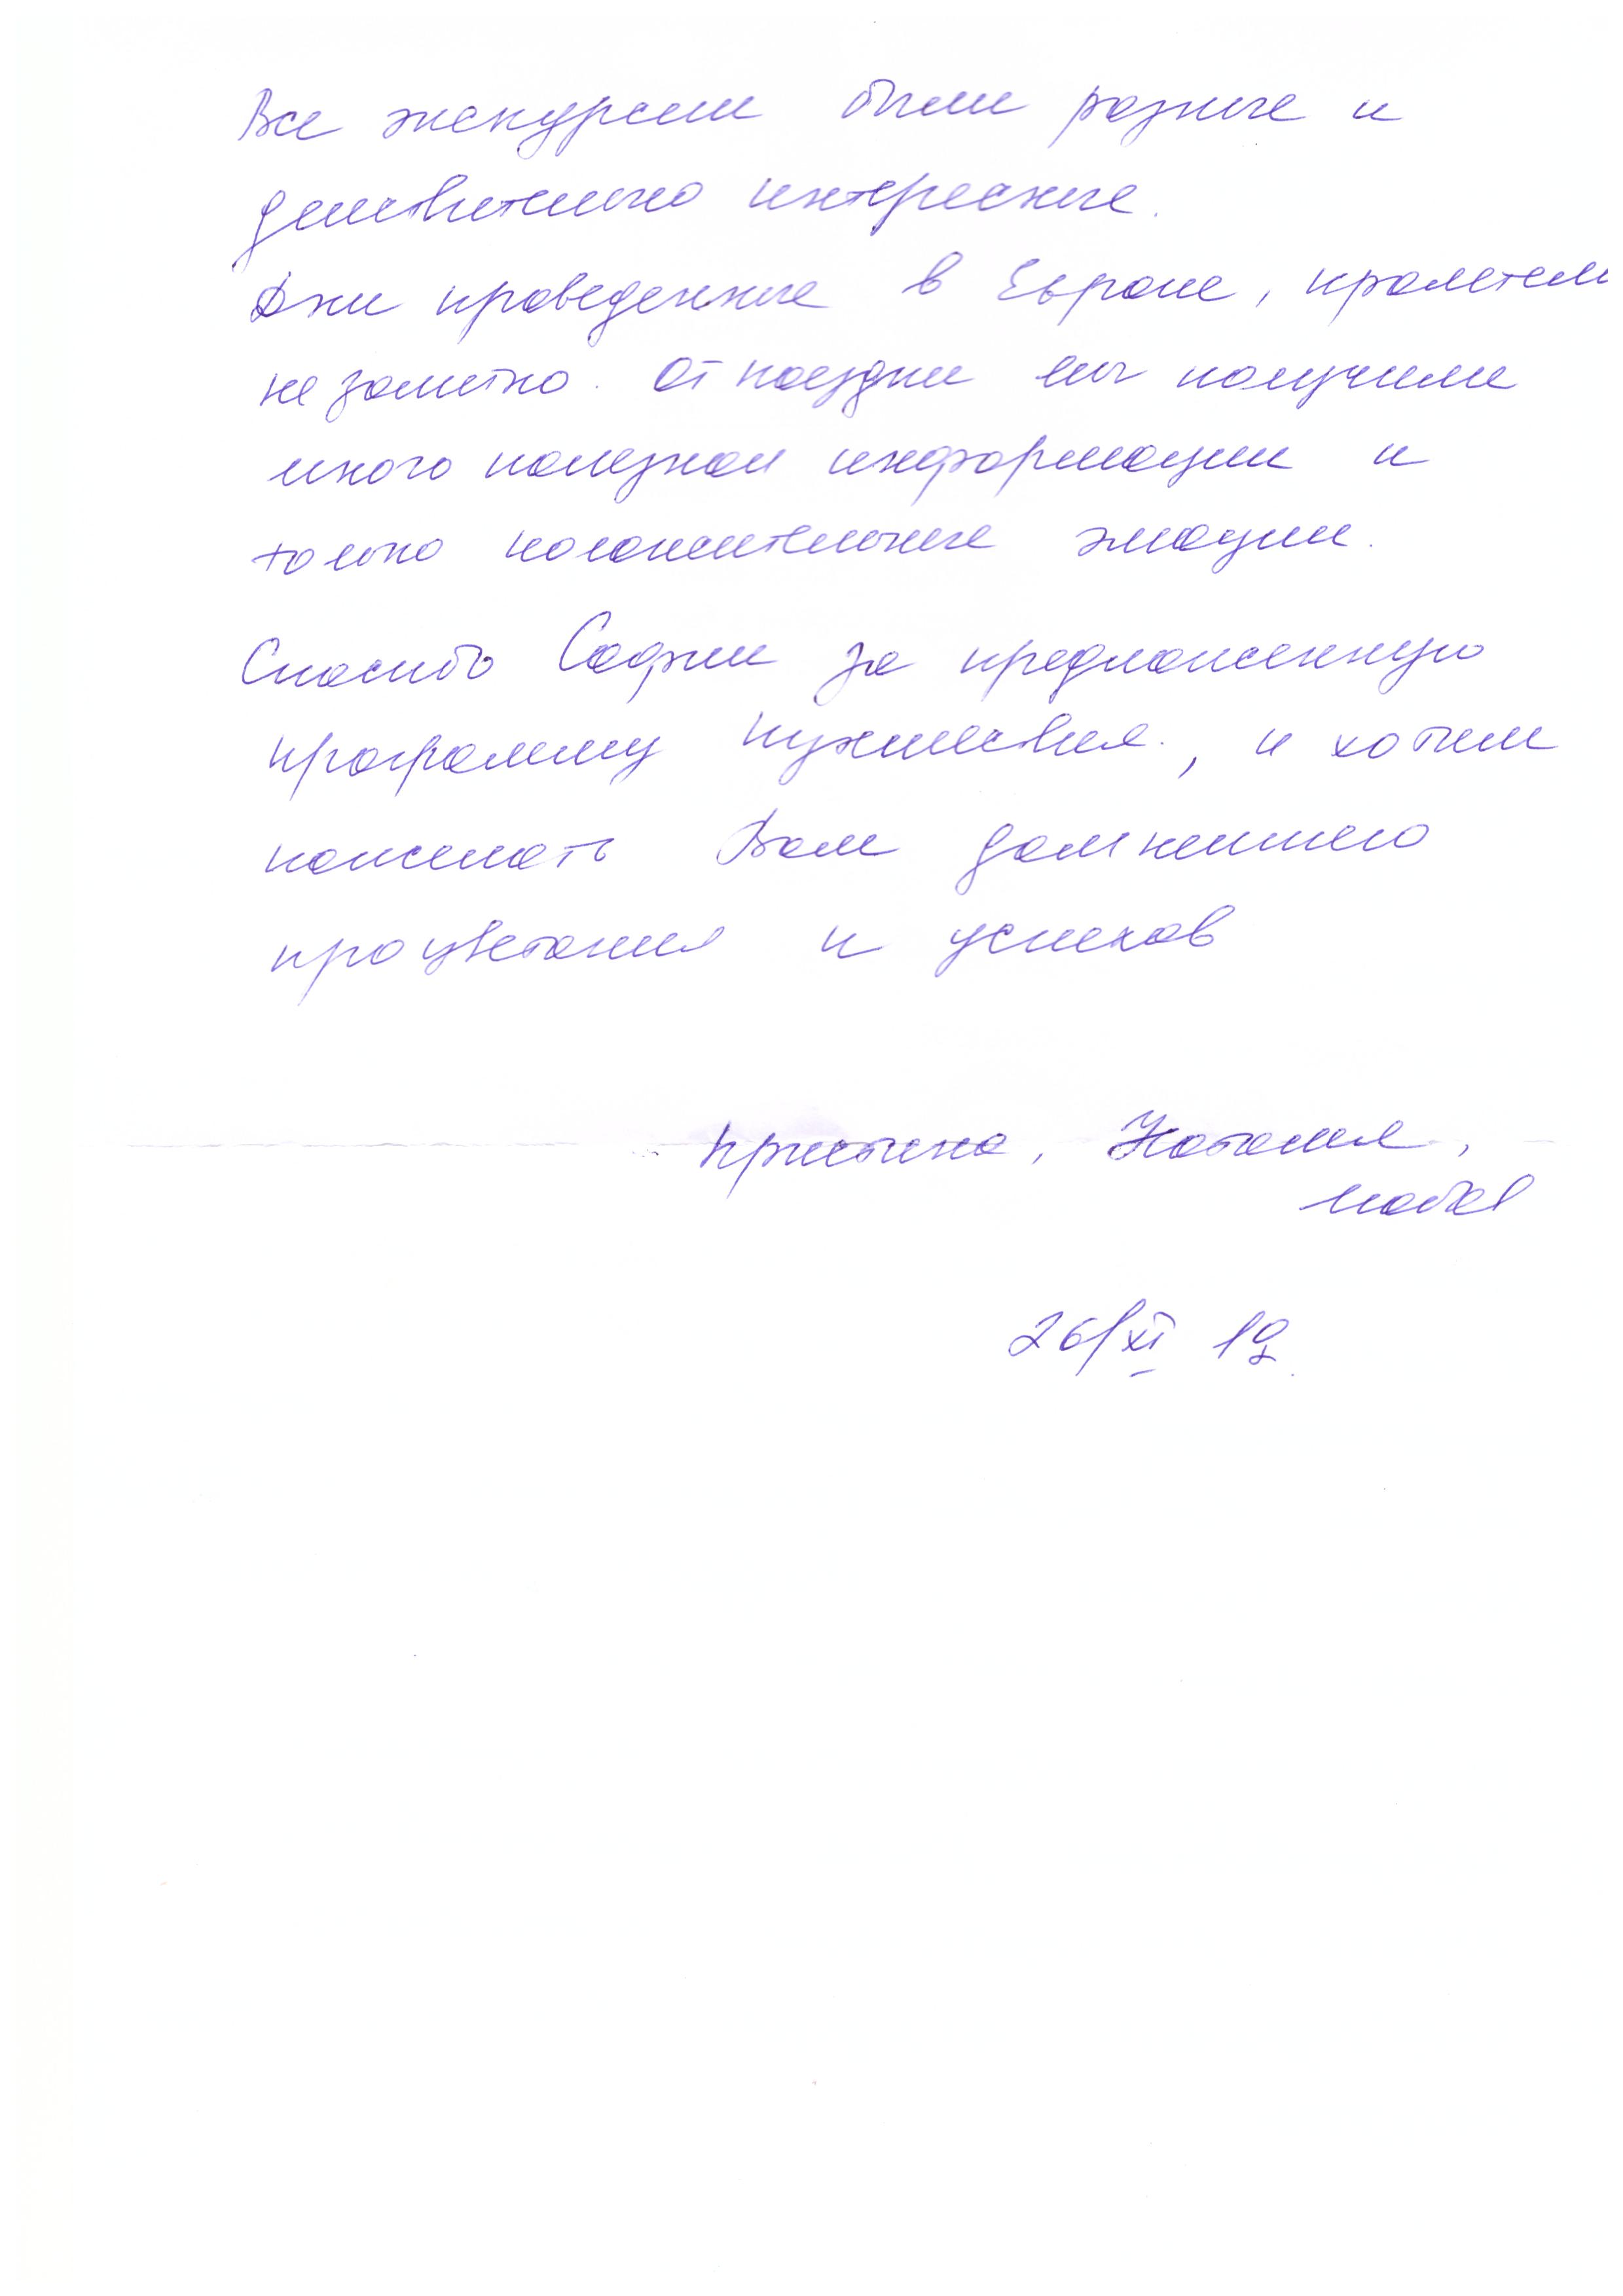 Все экскурсии были разные и
действительно интересные.
Дни проведенные в Европе, пролетели
не заметно. От поездки мы получили
много полезной информации и
только положительные эмоции.
Спасибо Софии за предложенную
программу путешествия, и хотим
пожелать Вам дальнейшего
процветания и успехов
Кристина, Наталия,
26/XI 19